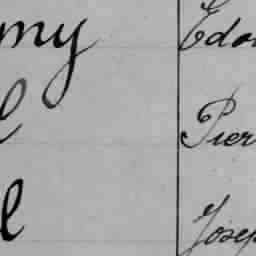 my Edo
l Pier
l Josep